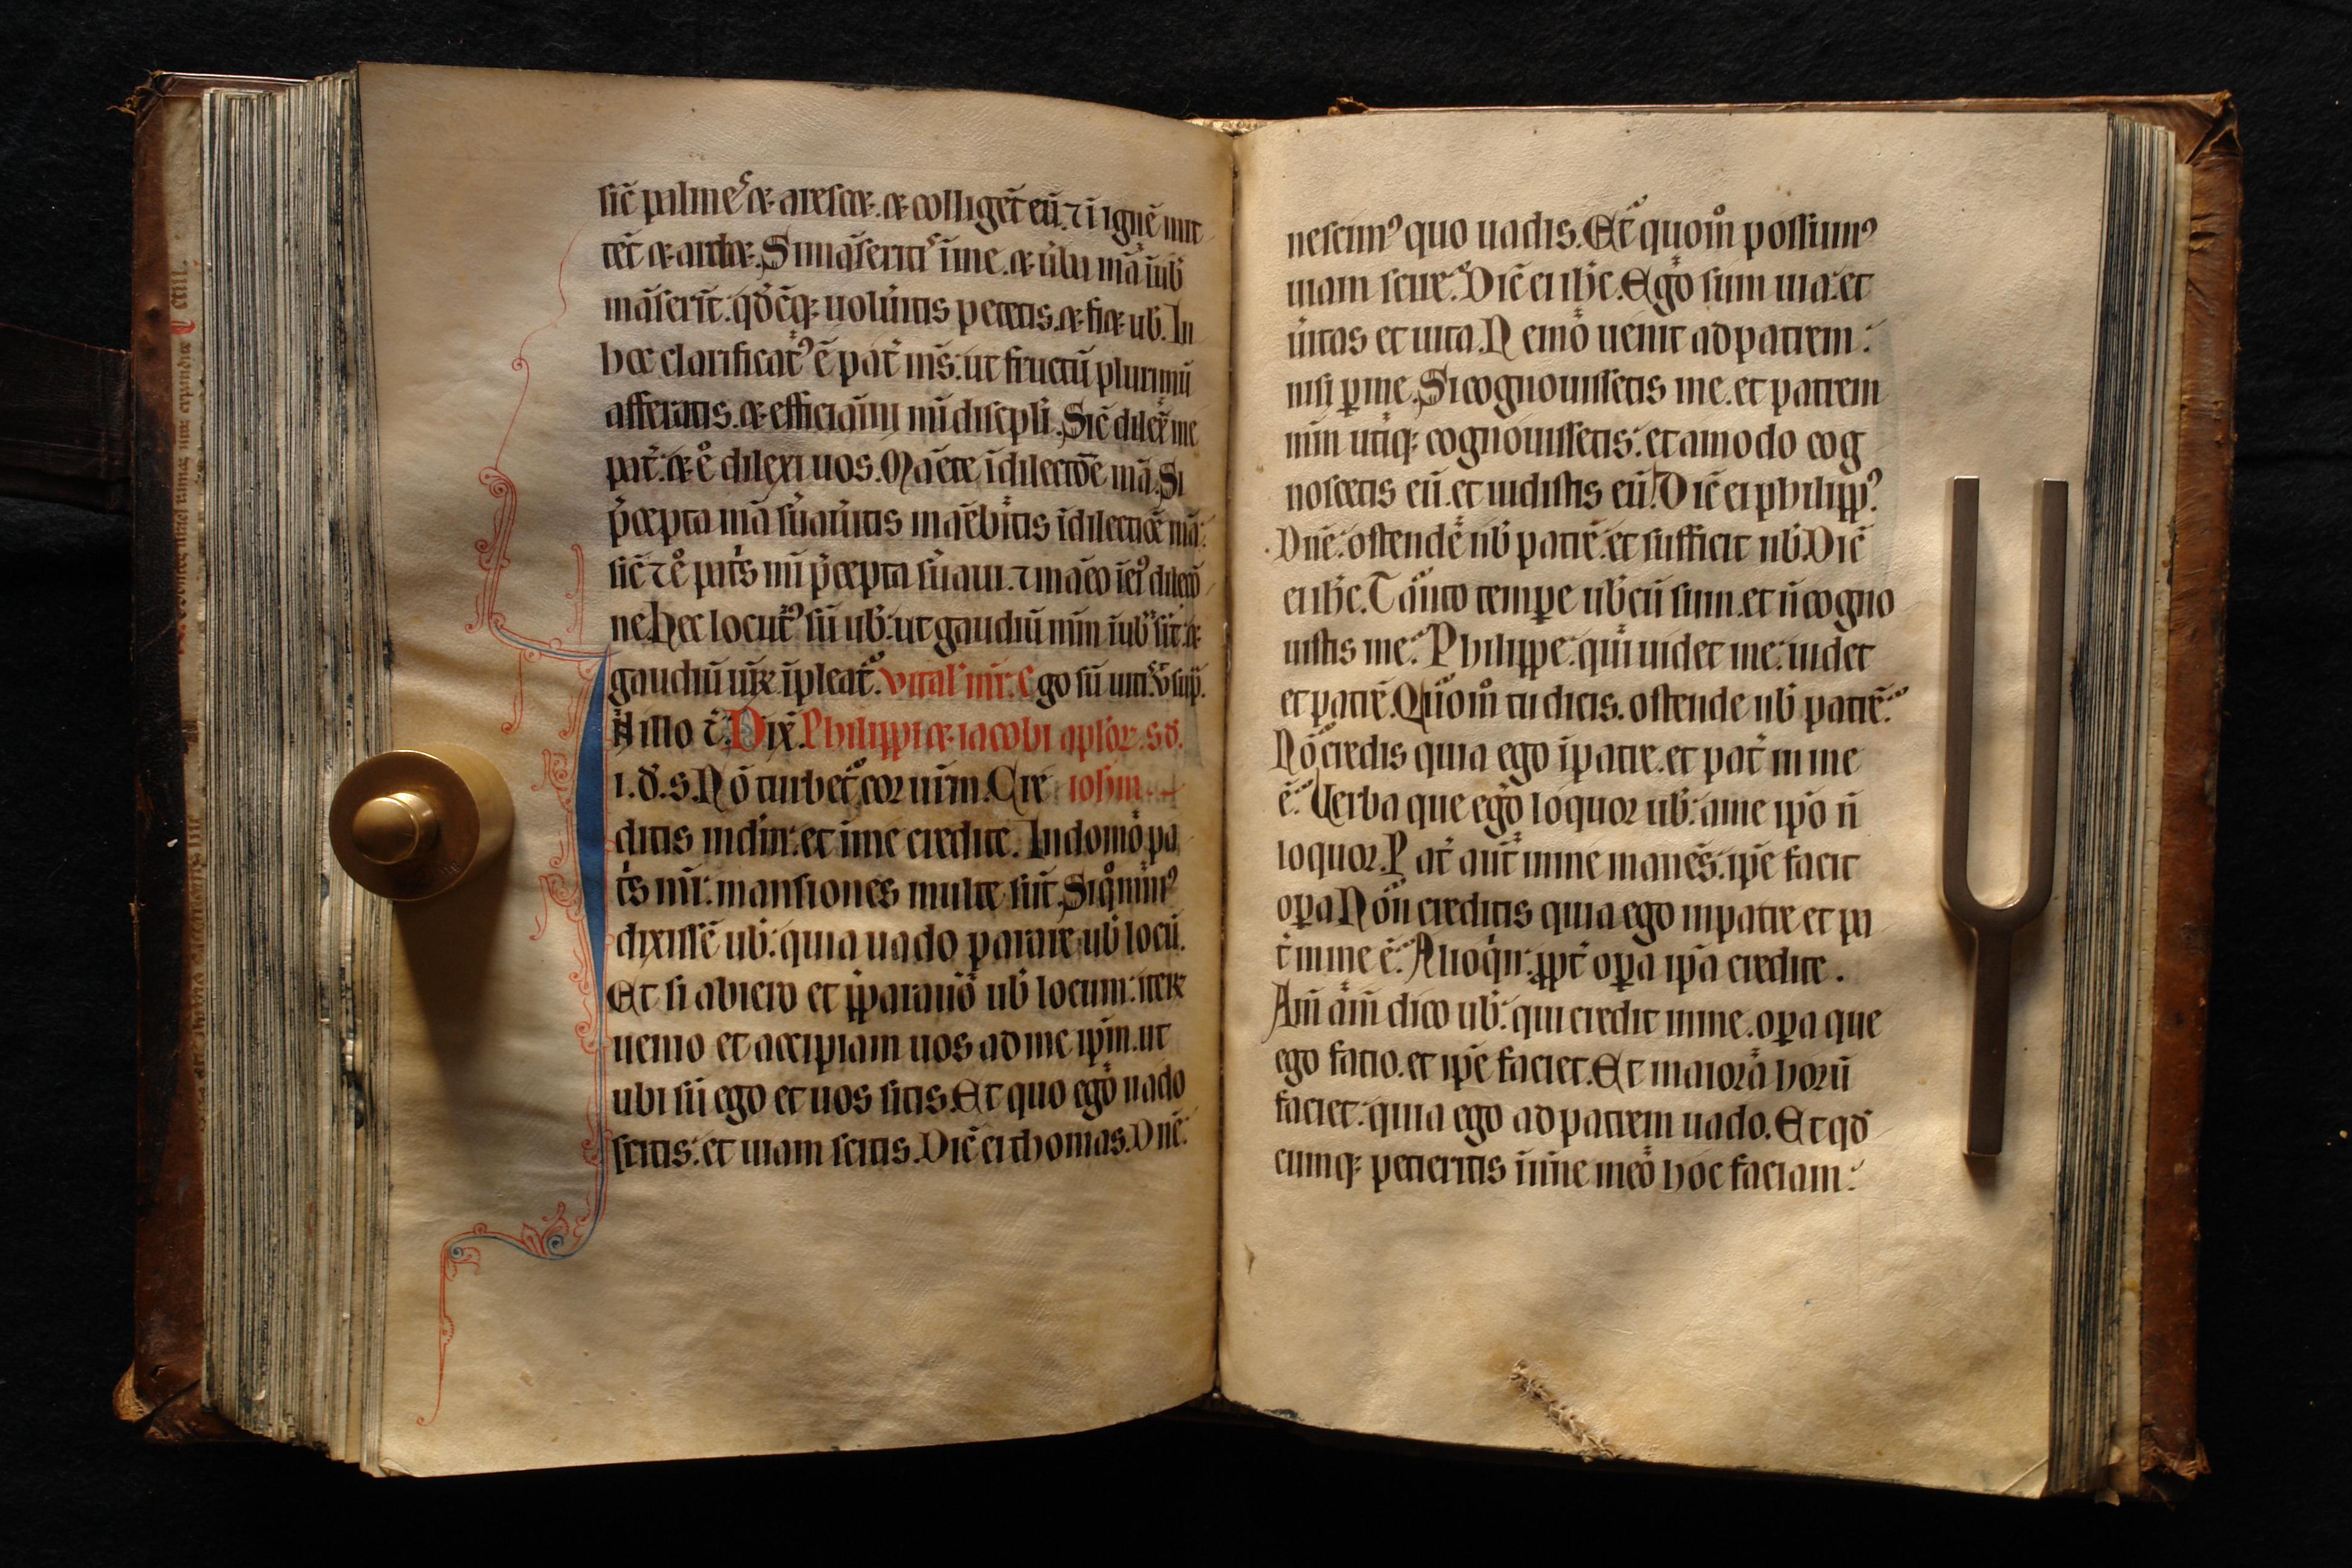 sic̄ palmeˢ ⁊ arescet. ⁊ colliger̄t eū. ⁊ ī ignē mit
tēt ⁊ ardet. Si māserit̉ˢ ī me. ⁊ ūba mā ī ub̄
māserīt. qd̄cūq; uolūitis petetis. ⁊ fiet ub̄. In
hoc clarificat᷒ ē pat̄ m̄s: ut fructū plurimū
afferatis. ⁊ efficiāmi m̄i discipli. Sic̄ dilex̄ me
pat̄: ⁊ ē dilexi uos. Māete ī dilectōe mā. Si
p̄cepta mā ŝuaūitis māebitis ī dilectōe mā:
sic̄ ⁊ ē pat̄s mī p̄cepta ŝuaui. ⁊ māeo ī ei᷒ dilectō
ne. Hec locut᷒ sū ub̄: ut gaudiū mm̄ ī ub̄ sit: ⁊
gaudiū ur̄m īpleat̄. vital' mr̄. Ego sū uitˢ ū sup̄.
In illo t̄. Dix̄. Philippi ⁊ iacobi aplor̄. sd̄.
i. d̄. s. Nō turbet̄ cor ur̄m. Cre iohm̄.
ditis in dm̄: et ī me credite. In domo pa
t̄s mī: mansiones multe sūt. Si qo min᷒
dixissē ub̄: quia uado parare ub̄ locū.
Et si abiero et p̄parauō ub̄ locum: iterꝝ
uenio et accipiam uos ad me ip̄m. ut
ubi sū ego et uos sitis. Et quo ego uado
scitis: et uiam scitis. Dic̄ ei thomas. Dn̄e:
nescim᷒ quo uadis. Et quom̄ possum᷒
uiam scire. Dic̄ ei ih̄c. Ego sum uia: et
ūitas et uita. Nemo uenit ad patrem:
nisi ꝑ me. Si cognouissetis me. et patrem
mm̄ utiq; cognouissetis: et amodo cog
noscetis eū. et uidistis eū. Dic̄ ei philipp᷒.
Dn̄e: ostende nb̄ patrē. et sufficit nb̄. Dic̄
ei ih̄c. Tanto tempꝑe ub̄cū sum. et n̄ cogno
uistis me. Philippe: qui uidet me: uidet
et patrē. Quom̄ tu dicis. ostende nb̄ patrē.
Nō credis quia ego ī patre. et pat̄ in me
ē. Uerba que ego loquor ub̄: a me ip̄o n̄
loquor. Pat̄ aūt in me manēs: ip̄e facit
oꝑa. Non creditis quia ego in patre et pa
t̄ in me ē. Alioqn̄: ꝓpt̄ oꝑa ip̄a credite.
Am̄ am̄ dico ub̄: qui credit in me. oꝑa que
ego facio. et ip̄e faciet. Et maiora horū
faciet: quia ego ad patrem uado. Et qd̄
cumq; petieritis ī nīne meo hoc faciam: